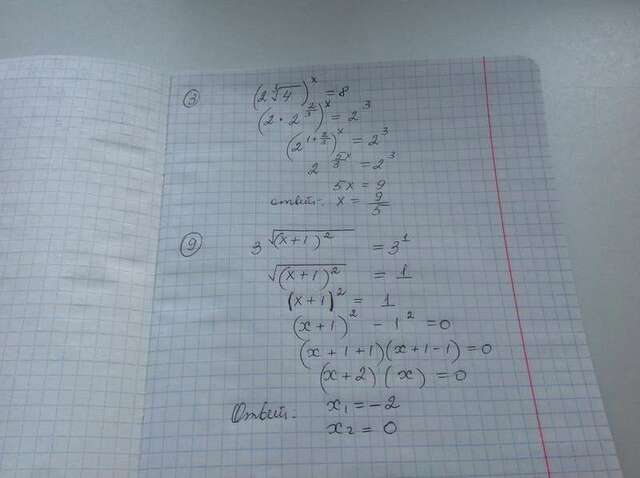 ③ (2∛4)ˣ = 8
(2 · 2^(2/3))ˣ = 2³
(2^(1+2/3))ˣ = 2³
2^(5/3 x) = 2³
5x = 9
ответ: x = 9/5
⑨ 3^√((x+1)²) = 3¹
√((x+1)²) = 1
(x+1)² = 1
(x+1)² - 1² = 0
(x+1+1)(x+1-1) = 0
(x+2)(x) = 0
Ответ: x₁ = -2
x₂ = 0